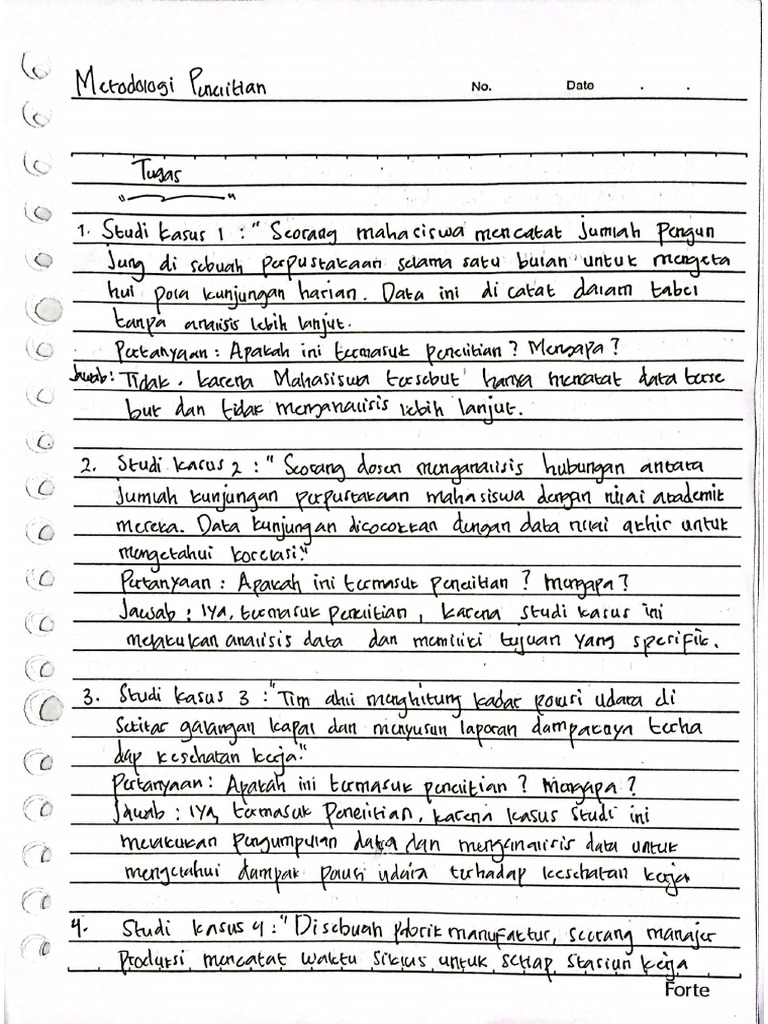 Metodologi Penelitian
No. Date
Tugas
1. Studi kasus 1 : "Seorang mahasiswa mencatat jumlah pengun
jung di sebuah perpustakaan selama satu bulan untuk mengeta
hui pola kunjungan harian. Data ini di catat dalam tabel
tanpa analisis lebih lanjut.
Pertanyaan : Apakah ini termasuk penelitian ? Mengapa ?
Jawab : Tidak. karena Mahasiswa tersebut hanya mencatat data terse
but dan tidak menganalisis lebih lanjut.
2. Studi kasus 2 : "Seorang dosen menganalisis hubungan antara
jumlah kunjungan perpustakaan mahasiswa dengan nilai akademik
mereka. Data kunjungan dicocokkan dengan data nilai akhir untuk
mengetahui korelasi."
Pertanyaan : Apakah ini termasuk penelitian ? Mengapa ?
Jawab : Iya, termasuk penelitian, karena studi kasus ini
melakukan analisis data dan memiliki tujuan yang spesifik.
3. Studi kasus 3 : "Tim ahli menghitung kadar polusi udara di
sekitar galangan kapal dan menyusun laporan dampaknya terha
dap kesehatan kerja."
Pertanyaan : Apakah ini termasuk penelitian ? Mengapa ?
Jawab : Iya, termasuk Penelitian, karena kasus studi ini
melakukan pengumpulan data dan menganalisis data untuk
mengetahui dampak polusi udara terhadap kesehatan kerja
4. Studi kasus 4 : "Disebuah pabrik manufaktur, seorang manajer
Produksi mencatat waktu siklus untuk setiap stasiun kerja
Forte